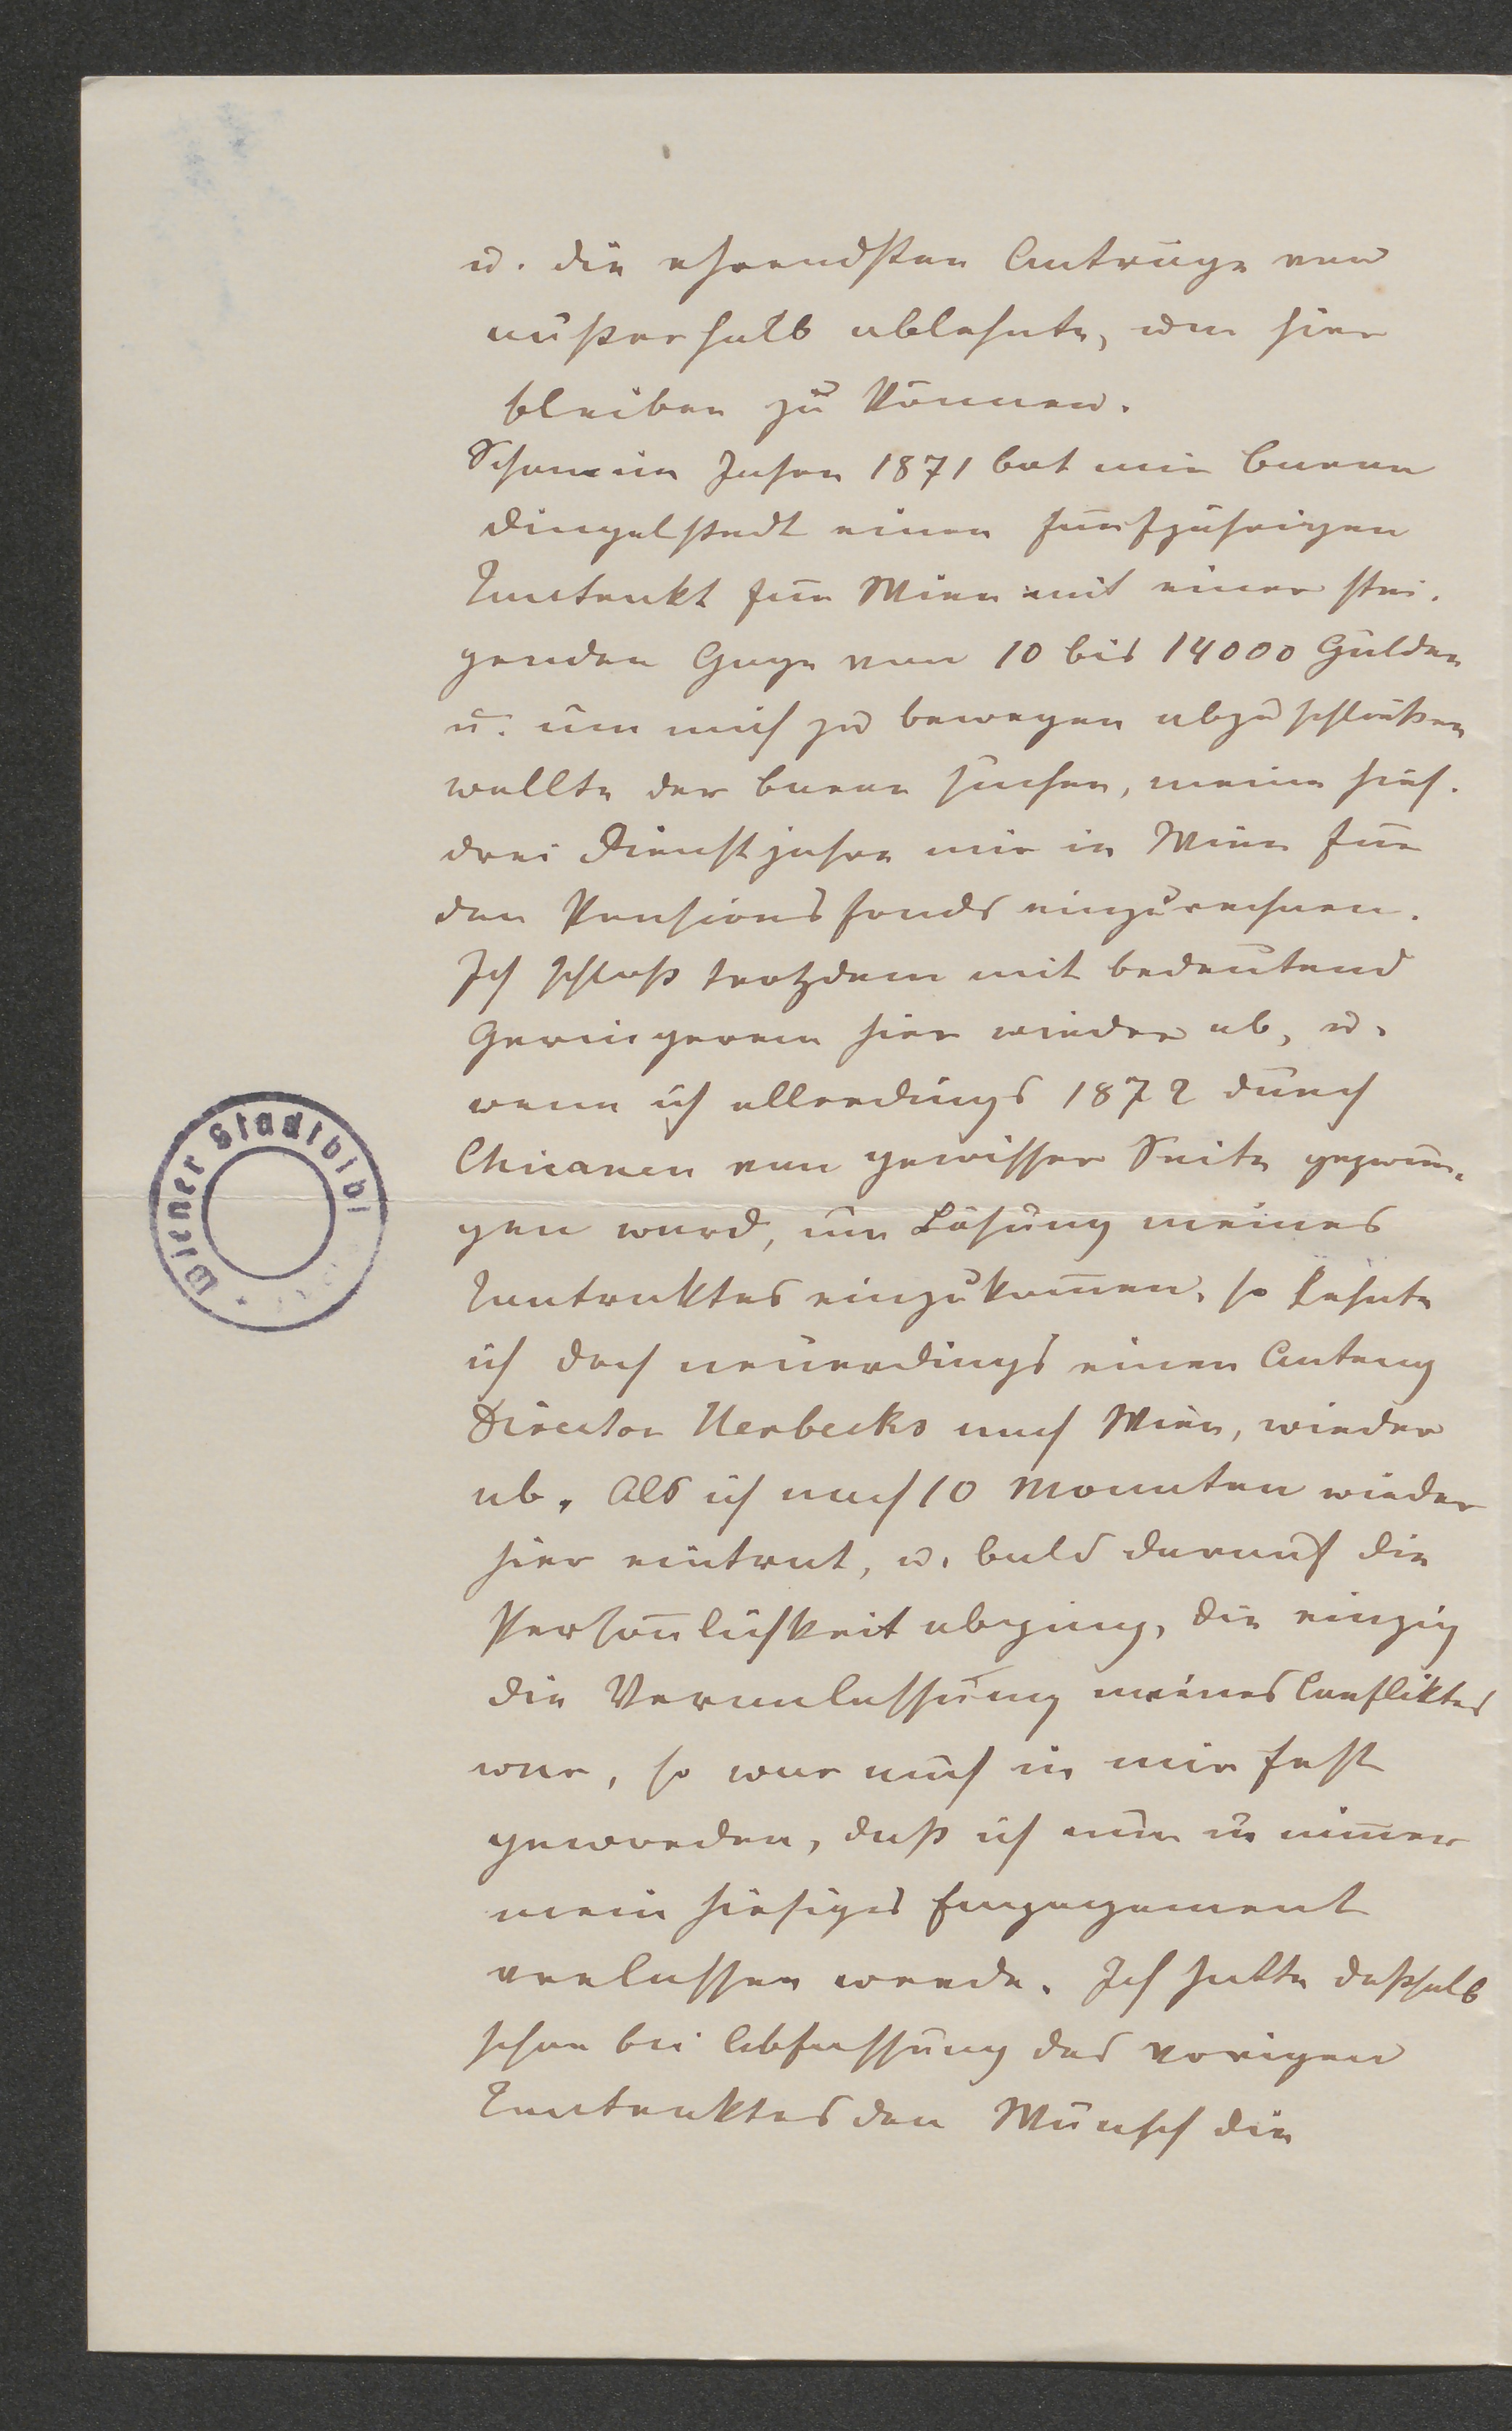 u. die ehrendsten Anträge von
außerhalb ablehnte, um hier
bleiben zu können.
Schon im Jahre 1871 bot mir Baron
Dingelstedt einen fünfjährigen
Kontrakt für Wien mit einer stei-
genden Gage von 10 bis 14000 Gulden
u. um mich zu bewegen abzuschließen
wollte der Baron suchen, meine hies.
drei Dienstjahre mir in Wien für
den Pensionsfonds einzurechnen.
Ich schloß trotzdem mit bedeutend
Geringerem hier wieder ab, u.
wenn ich allerdings 1872 durch
Chicanen von gewisser Seite gezwun-
gen ward, um Lösung meines
Kontraktes einzukom̅en, so lehnte
ich doch neuerdings einen Antrag
Director Herbecks nach Wien, wieder
ab. Als ich nach 10 Monaten wieder
hier eintrat, u. bald darauf die
Persönlichkeit abging, die einzig
die Veranlassung meines Confliktes
war, so war auch in mir fest
geworden, daß ich nun u nim̅er
mein hiesiges Engagement
verlassen werde. Ich hatte deßhalb
schon bei Abfassung des vorigen
Kontraktes den Wunsch die
Wiener Stadtbibl